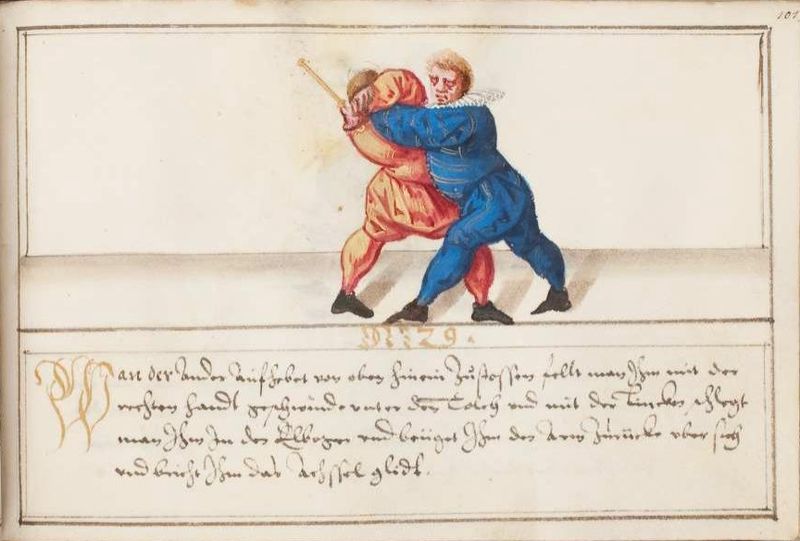 101
Nº: 29.
Wan der Ander Aufhebet von oben hinein Zustossen fellt man Ihm mit der
rechten handt geschwinde unter den Tolch und mit der Lincken schlegt
man Ihm In den Elboge und beüget Ihm den Arm Zurücke uber sich
und bricht Ihm das Achssel gliedt.